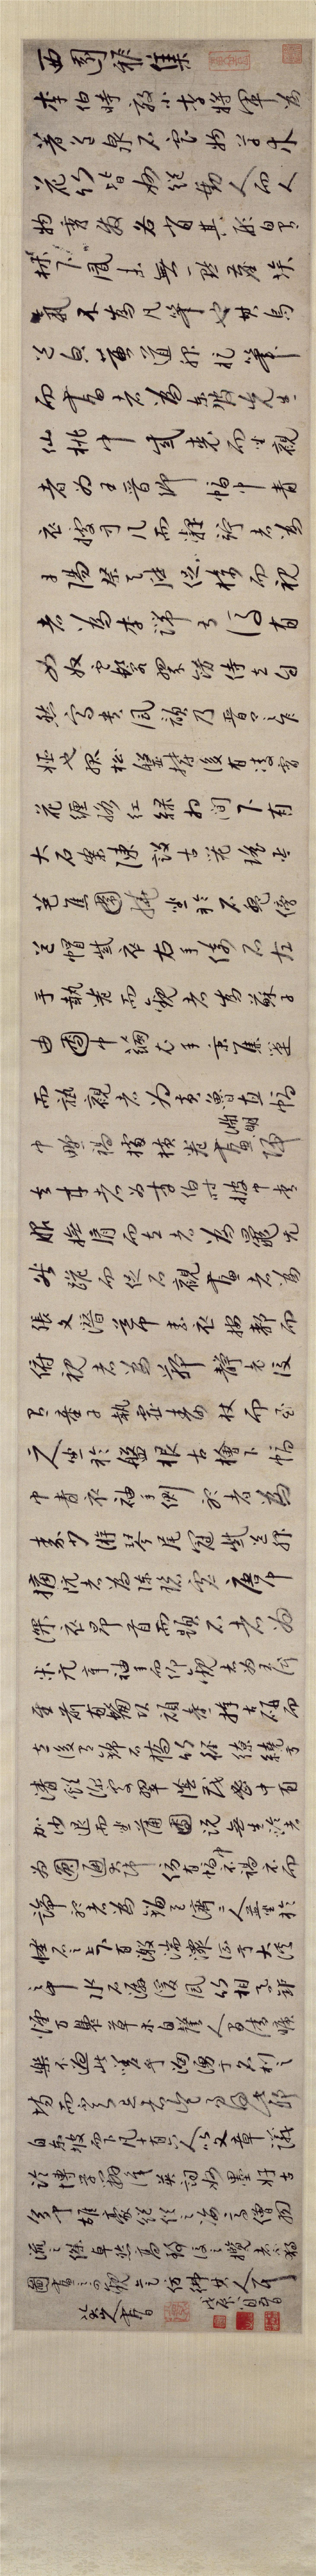 西園雅集
李伯時效小李將軍為
著色泉石雲物草木
花竹皆妙絕動人而人
物秀發各肖其形自有
林下風味無一點塵埃
氣不為凡筆也其烏
黃道服捉筆
而書者為東坡先生
仙桃巾紫裘而坐觀
者為王晉卿幅巾青
衣據方几而凝竚者為
丹陽蔡天啟捉椅而視
者為李端叔後有
女奴雲鬟翠飾侍立自
然富貴風韻乃晉卿之
姬也孤松盤鬱後有凌霄
花纏絡紅綠相間下有
大石案陳設古器瑤琴
芭蕉圍繞坐於石盤傍
道帽紫衣右手倚石左
手執卷而觀者為蘇子
由團巾繭衣手秉蕉箑
而熟觀者為黃魯直幅
巾野褐據橫卷畫淵明歸
去來者為李伯時披巾青
服撫肩而立者為晁无
咎跪而捉石觀畫者為
張文潛道巾素衣按膝而
俯視者為鄭靖老後
有童子執靈壽杖而立
二人坐於盤根古檜下幅
巾青衣袖手側聽者為
秦少游琴尾冠紫道服
摘阮者為陳碧虛唐巾
深衣昂首而題石者為
米元章袖手而仰觀者為王仲
至前有鬅頭頑童捧古硯而
立後有錦石橋竹徑繚繞於
清溪深處翠陰茂密中有
袈裟坐蒲團說無生論者
為圓通大師傍有幅巾褐衣而
諦聽者為劉巨濟二人並坐於
怪石之上下有激湍潨流于大溪
之中水石潺湲風竹相吞爐
煙方裊草木自馨人間清曠
樂不過此嗟乎洶湧于名利之
場而不知退者豈易得此耶
自東坡而下凡十有六人以文章議
論博學辨識英詞妙墨好古
多聞雄豪絕俗之資高僧羽
流之傑卓然高致後之覽者不獨
圖畫之可觀亦足仿佛其人耳